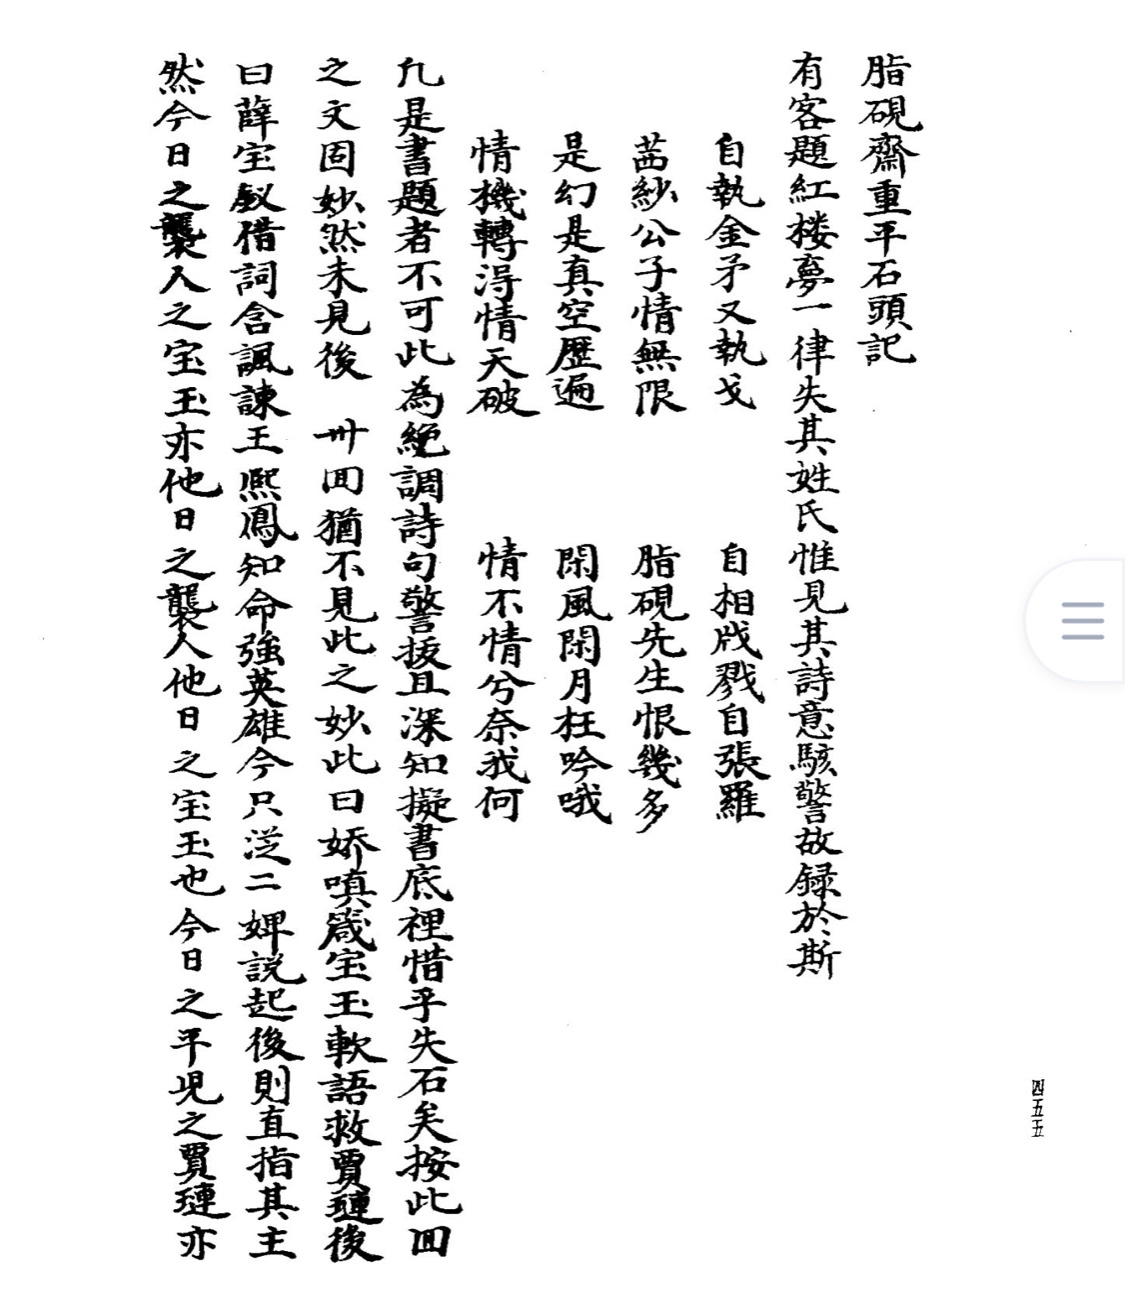 脂硯齋重平石頭記
有客題紅楼夢一律失其姓氏惟見其詩意駭警故録於斯
自執金矛又執戈　自相戕戮自張羅
茜紗公子情無限　脂硯先生恨幾多
是幻是真空歴遍　閑風閑月枉吟哦
情機轉淂情天破　情不情兮奈我何
凢是書題者不可此為絶調詩句警拔且深知擬書底裡惜乎失石矣按此囬
之文固妙然未見後　卅囬猶不見此之妙此曰娇嗔箴宝玉軟語救賈璉後
曰薛宝釵借詞含諷諫王熙鳳知命強英雄今只従二婢説起後則直指其主
然今日之襲人之宝玉亦他日之襲人他日之宝玉也今日之平児之賈璉亦
四五五